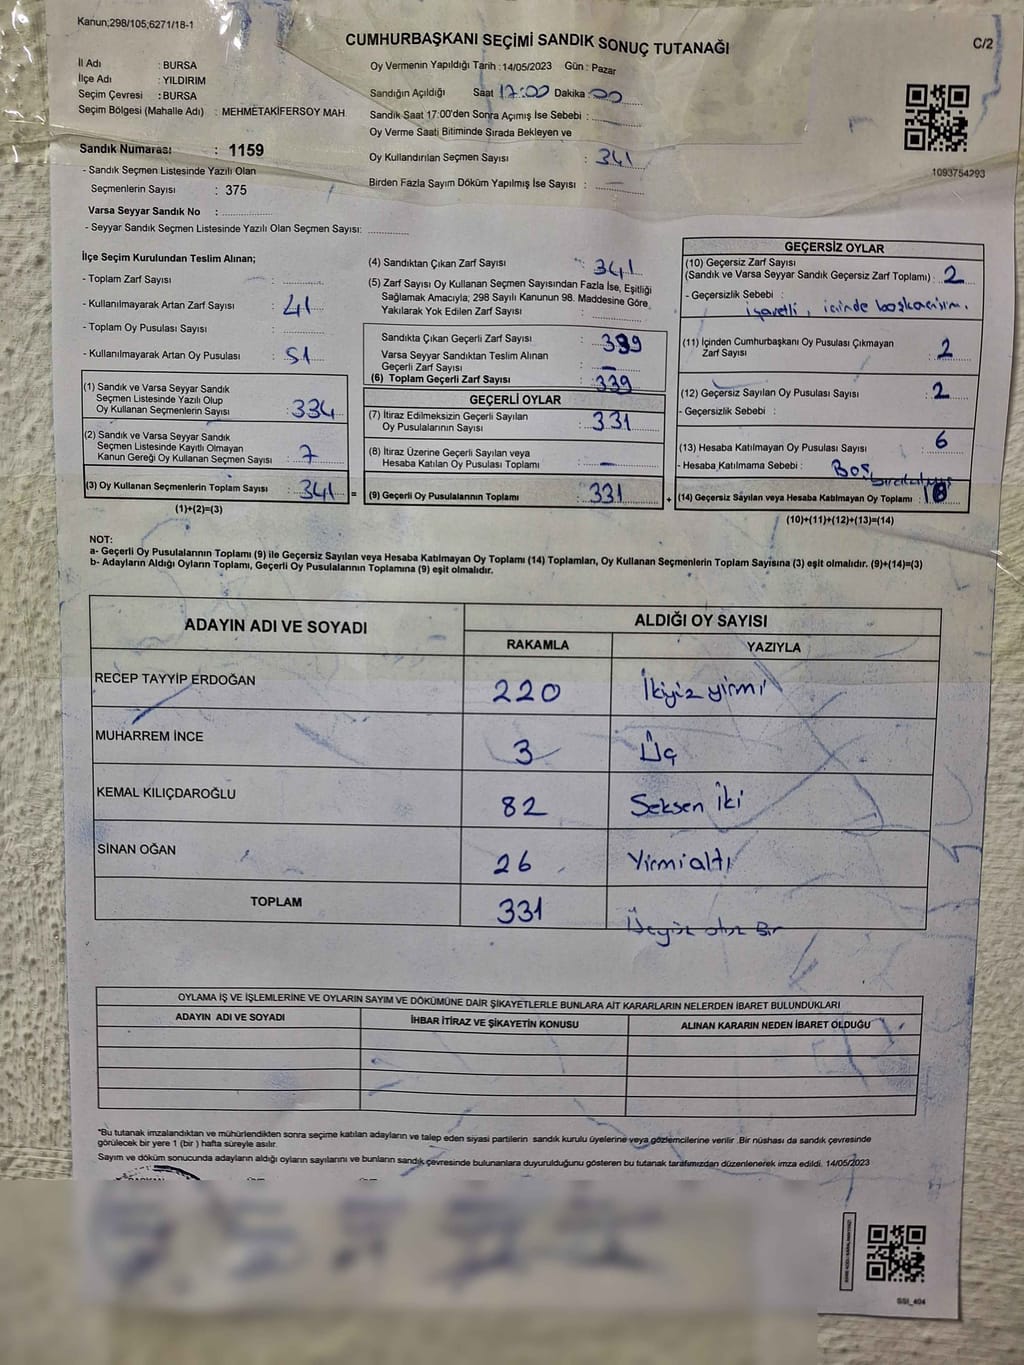 Kanun;298/105;6271/18-1
CUMHURBAŞKANI SEÇİMİ SANDIK SONUÇ TUTANAĞI
C/2
İl Adı : BURSA
İlçe Adı : YILDIRIM
Seçim Çevresi : BURSA
Seçim Bölgesi (Mahalle Adı) : MEHMETAKİFERSOY MAH.
Oy Vermenin Yapıldığı Tarih : 14/05/2023 Gün : Pazar
Sandığın Açıldığı Saat 17:00 Dakika 00
Sandık Saat 17:00'den Sonra Açımış İse Sebebi :
Oy Verme Saati Bitiminde Sırada Bekleyen ve
Oy Kullandırılan Seçmen Sayısı : 341
Birden Fazla Sayım Döküm Yapılmış İse Sayısı : —
1093754293
Sandık Numarası : 1159
- Sandık Seçmen Listesinde Yazılı Olan
Seçmenlerin Sayısı : 375
Varsa Seyyar Sandık No :
- Seyyar Sandık Seçmen Listesinde Yazılı Olan Seçmen Sayısı:
İlçe Seçim Kurulundan Teslim Alınan;
- Toplam Zarf Sayısı :
- Kullanılmayarak Artan Zarf Sayısı : 41
- Toplam Oy Pusulası Sayısı :
- Kullanılmayarak Artan Oy Pusulası : 51
(1) Sandık ve Varsa Seyyar Sandık
Seçmen Listesinde Yazılı Olup
Oy Kullanan Seçmenlerin Sayısı : 334
(2) Sandık ve Varsa Seyyar Sandık
Seçmen Listesinde Kayıtlı Olmayan
Kanun Gereği Oy Kullanan Seçmen Sayısı : 7
(3) Oy Kullanan Seçmenlerin Toplam Sayısı : 341 =
(1)+(2)=(3)
(4) Sandıktan Çıkan Zarf Sayısı : 341
(5) Zarf Sayısı Oy Kullanan Seçmen Sayısından Fazla İse, Eşitliği
Sağlamak Amacıyla; 298 Sayılı Kanunun 98. Maddesine Göre
Yakılarak Yok Edilen Zarf Sayısı :
Sandıkta Çıkan Geçerli Zarf Sayısı : 339
Varsa Seyyar Sandıktan Teslim Alınan
Geçerli Zarf Sayısı : —
(6) Toplam Geçerli Zarf Sayısı : 339
GEÇERLİ OYLAR
(7) İtiraz Edilmeksizin Geçerli Sayılan
Oy Pusulalarının Sayısı : 331
(8) İtiraz Üzerine Geçerli Sayılan veya
Hesaba Katılan Oy Pusulası Toplamı : —
(9) Geçerli Oy Pusulalarının Toplamı : 331 +
GEÇERSİZ OYLAR
(10) Geçersiz Zarf Sayısı
(Sandık ve Varsa Seyyar Sandık Geçersiz Zarf Toplamı) : 2
- Geçersizlik Sebebi :
işaretli, içinde
(11) İçinden Cumhurbaşkanı Oy Pusulası Çıkmayan
Zarf Sayısı : 2
(12) Geçersiz Sayılan Oy Pusulası Sayısı : 2
- Geçersizlik Sebebi :
(13) Hesaba Katılmayan Oy Pusulası Sayısı : 6
- Hesaba Katılmama Sebebi : Boş
(14) Geçersiz Sayılan veya Hesaba Katılmayan Oy Toplamı :
(10)+(11)+(12)+(13)=(14)
NOT:
a- Geçerli Oy Pusulalarının Toplamı (9) ile Geçersiz Sayılan veya Hesaba Katılmayan Oy Toplamı (14) Toplamları, Oy Kullanan Seçmenlerin Toplam Sayısına (3) eşit olmalıdır. (9)+(14)=(3)
b- Adayların Aldığı Oyların Toplamı, Geçerli Oy Pusulalarının Toplamına (9) eşit olmalıdır.
ADAYIN ADI VE SOYADI
ALDIĞI OY SAYISI
RAKAMLA YAZIYLA
RECEP TAYYİP ERDOĞAN 220 İkiyüz yirmi
MUHARREM İNCE 3 Üç
KEMAL KILIÇDAROĞLU 82 Seksen İki
SİNAN OĞAN 26 Yirmi altı
TOPLAM 331 Üçyüz otuz Bir
OYLAMA İŞ VE İŞLEMLERİNE VE OYLARIN SAYIM VE DÖKÜMÜNE DAİR ŞİKAYETLERLE BUNLARA AİT KARARLARIN NELERDEN İBARET BULUNDUKLARI
ADAYIN ADI VE SOYADI İHBAR İTİRAZ VE ŞİKAYETİN KONUSU ALINAN KARARIN NEDEN İBARET OLDUĞU
*Bu tutanak imzalandıktan ve mühürlendikten sonra seçime katılan adayların ve talep eden siyasi partilerin sandık kurulu üyelerine veya gözlemcilerine verilir .Bir nüshası da sandık çevresinde
görülecek bir yere 1 (bir ) hafta süreyle asılır.
Sayım ve döküm sonucunda adayların aldığı oyların sayılarını ve bunların sandık çevresinde bulunanlara duyurulduğunu gösteren bu tutanak tarafımızdan düzenlenerek imza edildi. 14/05/2023
SSI_404